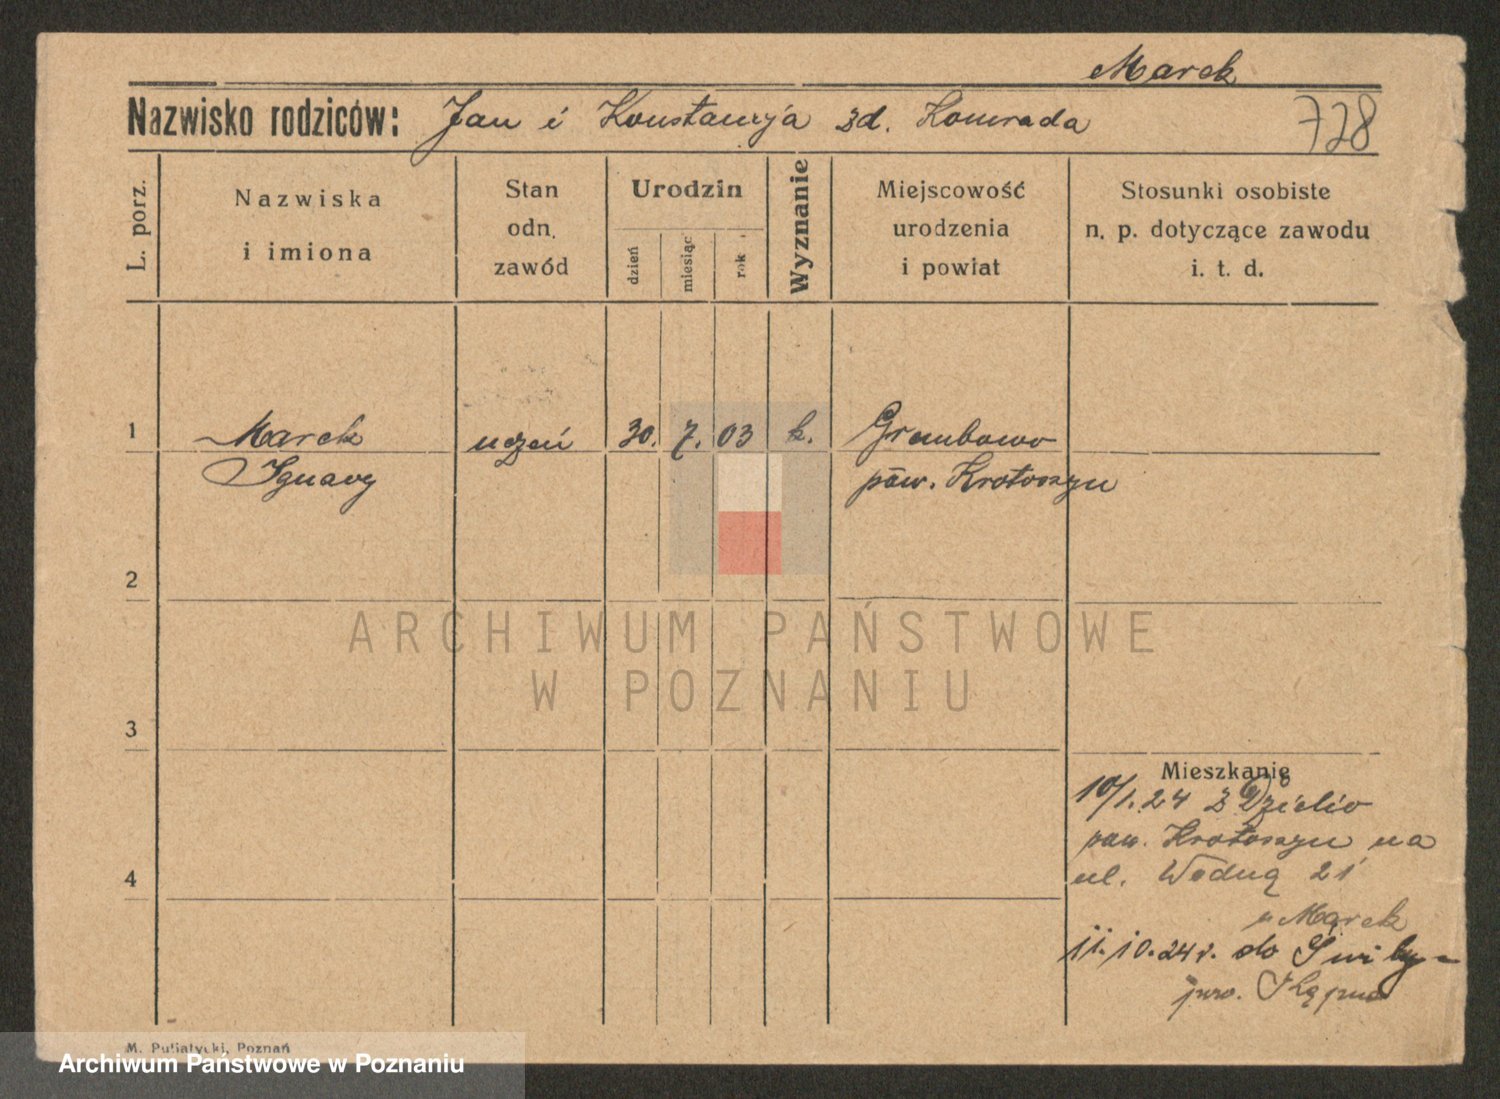 Marek
Nazwisko rodziców: Jan i Konstancja zd. Konrada
728
L. porz.
Nazwiska
i imiona
Stan
odn.
zawód
Urodzin
dzień
miesiąc
rok
Wyznanie
Miejscowość
urodzenia
i powiat
Stosunki osobiste
n. p. dotyczące zawodu
i. t. d.
1
Marek
Ignacy
uczeń
30. 7. 03
k.
pow. Krotoszyn
2
ARCHIWUM PAŃSTWOWE
W POZNANIU
3
Mieszkanie
10/1.24 z
pow. Krotoszyn na
ul. Wodną 21
4
u Marek
11.10.24 r. do
pow.
M. Puljatycki, Poznań
Archiwum Państwowe w Poznaniu